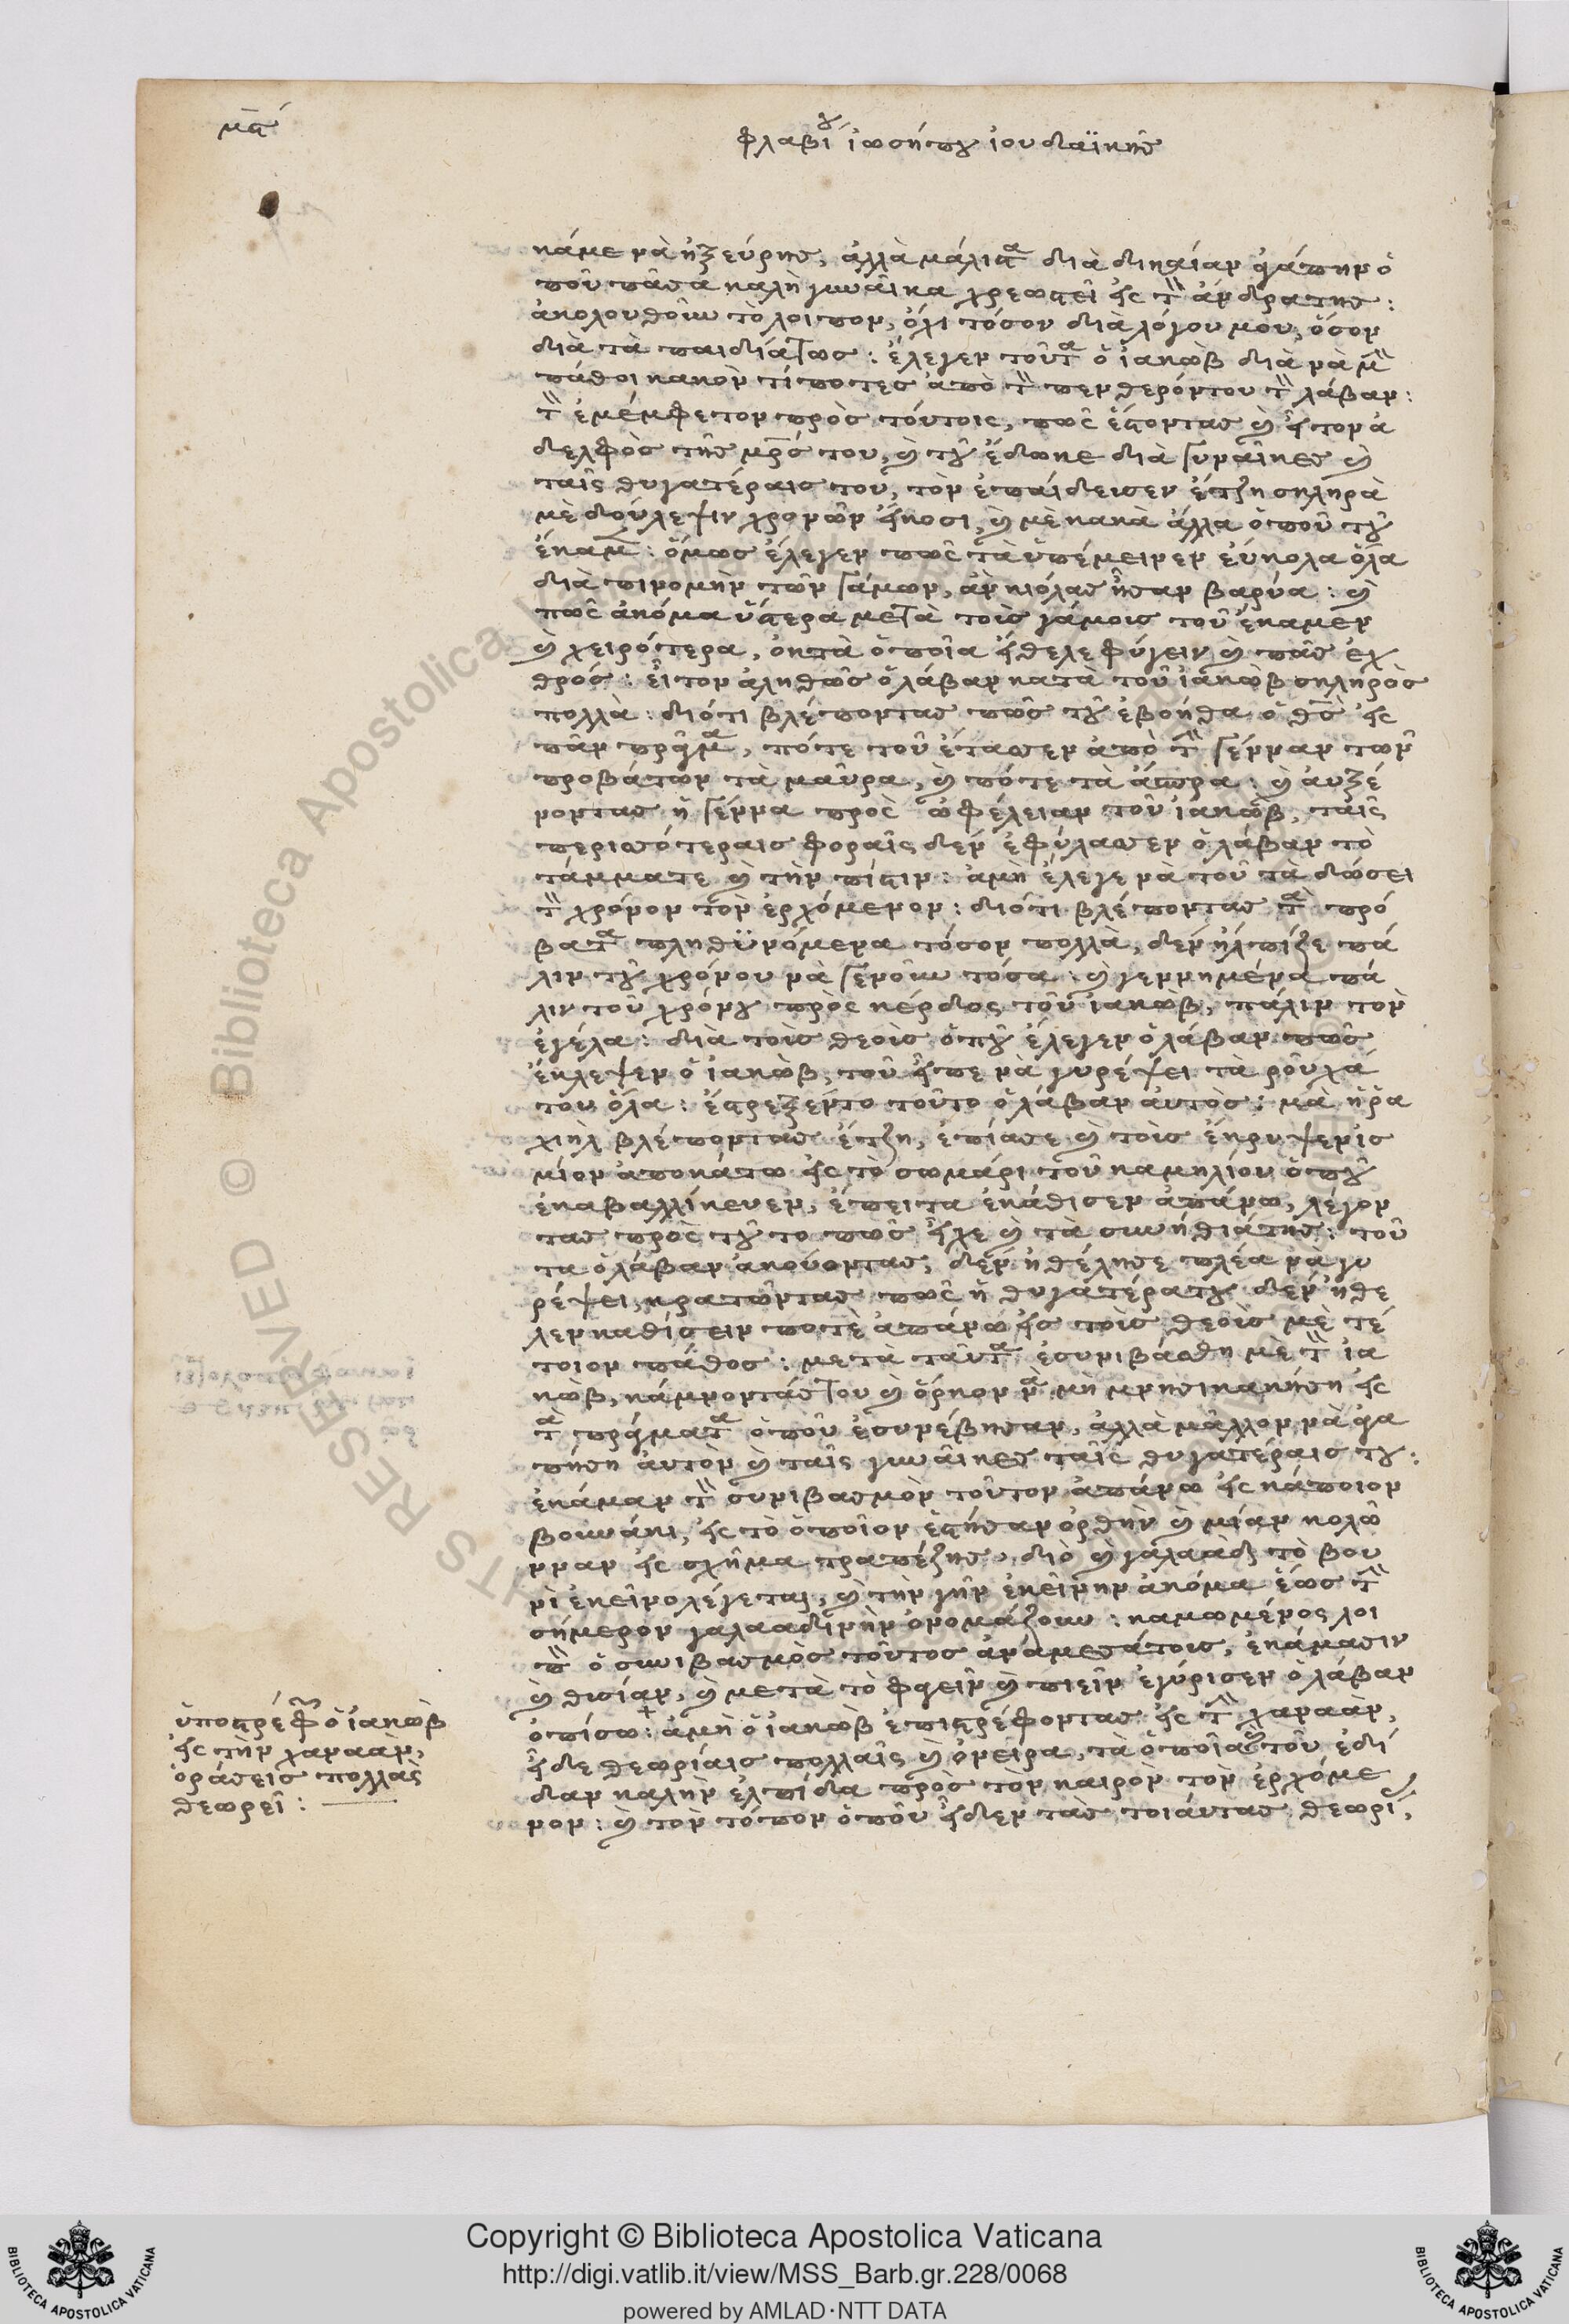 μα
φλαβίου ἰωσήπου ἰουδαϊκῆς
κάμε νὰ ἠξεύρης, ἀλλὰ μάλιστα διὰ δικαίαν ἀγάπην ὁ
ποῦ πᾶσα καλὴ γυναῖκα χρεωστεῖ εἰς τὸν ἄνδρα της:
ἀκολουθοῦν τὸ λοιπὸν, ὄχι τόσον διὰ λόγου μου, ὅσον
διὰ τὰ παιδιά τως: ἔλεγεν τοῦτα ὁ ἰακὼβ διὰ νὰ μὴν
πάθοι κακὸν τίποτες ἀπὸ τὸν πενθερόν του τὸν λάβαν:
τὸν ἐμέμφετον πρὸς τούτοις, πῶς ἔστοντας καὶ ἦτον ἀ
δελφὸς τῆς μρς του, καὶ τοῦ ἔδωκε διὰ γυναῖκες καὶ
ταῖς θυγατέραις του, τὸν ἐπαίδεισεν ἔτζη σκληρὰ
μὲ δούλεψιν χρονῶν εἴκοσι, καὶ μὲ κακὰ ἄλλα ὁποῦ τοῦ
ἔκαμεν: ὅμως ἔλεγεν πῶς τὰ ὑπέμεινεν εὔκολα ὅλα
διὰ πιρομὴν τῶν γάμων, ἂν κιόλας ἦσαν βαρύα: καὶ
πῶς ἀκόμα ὕστερα μετὰ τοὶς γάμοις τοῦ ἔκαμεν
καὶ χειρότερα, ὀκτὰ ὁποῖα ἤθελε φύγειν καὶ πᾶς ἐχ
θρός: εἶτον ἀληθῶς ὁ λάβαν κατὰ τοῦ ἰακὼβ σκληρὸς
πολλὰ: διότι βλέποντας πῶς τοῦ ἐβοήθα ὁ θς εἰς
πᾶν πρᾶγμα, πότε τοῦ ἔτασσεν ἀπὸ τὴν γένναν τῶν
προβάτων τὰ μαῦρα, καὶ πότε τὰ ἄσπρα: καὶ αὐξέ
νοντας ἡ γέννα πρὸς ὠφέλειαν τοῦ ἰακὼβ, ταῖς
περισσότεραις φοραῖς δὲν ἐφύλασσεν ὁ λάβαν τὸ
τάμμα τε καὶ τὴν πίστιν: ἀμὴ ἔλεγε νὰ τοῦ τὰ δώσει
τὸν χρόνον τὸν ἐρχόμενον: διότι βλέποντας τὰ πρό
βατα πληθϋνόμενα τόσον πολλὰ, δὲν ἤλπιζε πά
λιν τοῦ χρόνου νὰ γενοῦν τόσα: καὶ γεννημένα πά
λιν τοῦ χρόνου πρὸς κέρδος τοῦ ἰακὼβ, πάλιν τὸν
ἐγέλα: διὰ τοὶς θεοὶς ὁποῦ ἔλεγεν ὁ λάβαν πῶς
ἔκλεψεν ὁ ἰακὼβ, τοῦ εἶπε νὰ γυρέψει τὰ ροῦχά
του ὅλα: ἔστρεξεν το τοῦτο ὁ λάβαν αὐτὸς: μὰ ἡ ρα
χιὴλ βλέποντας ἔτζη, ἐπίασε καὶ τοὶς ἔκρυψεν εἰς
μίον ἀποκάτω εἰς τὸ σωμάρι τοῦ καμηλίου ὁποῦ
ἐκαβαλλίκευεν, ἔπειτα ἐκάθισεν ἀπάνω, λέγον
τας πρὸς τοῦτο πῶς εἶχε καὶ τὰ συνήθιά της: τοῦ
τα ὁ λάβαν ἀκούοντας, δὲν ἠθέλησε πλέα νὰ γυ
ρέψει, κρατῶντας πῶς ἡ θυγατέρα του δὲν ἤθε
λεν καθίσειν ποτὲ ἀπάνω εἰς τοὶς θεοὶς μὲ τέ
τοιον πάθος: μετὰ ταῦτα ἐσυνιβάσθη μὲ τὸν ἰα
κὼβ, κάμνοντάς του καὶ ὅρκον νὰ μὴ μνησικακήση εἰς
τὰ πράγματα ὁποῦ ἐσυνέβησαν, ἀλλὰ μᾶλλον νὰ ἀγα
πήση αὐτὸν καὶ ταῖς γυναῖκες ταῖς θυγατέραις του:
ἐκάμαν τὸν συνιβασμὸν τοῦτον ἀπάνω εἰς κάποιον
βουνάκι, εἰς τὸ ὁποῖον ἐστήσαν ὀρθὴν καὶ μίαν κολῶ
νναν εἰς σχῆμα τραπέζης, διὸ καὶ γαλααδ τὸ βου
νὶ ἐκεῖνο λέγεται, καὶ τὴν γῆν ἐκείνην ἀκόμα ἕως τὸν
σήμερον γαλααδινὴν ὀνομάζουν: καμωμένος λοι
πὸν ὁ συνιβασμὸς τοῦτος ἀνάμεσά τοις, ἐκάμασιν
καὶ θισίαν, καὶ μετὰ τὸ φαγεῖν καὶ πιεῖν ἐγύρισεν ὁ λάβαν
ὀπίσω: ἀμὴ ὁ ἰακὼβ ἐπιστρέφοντας εἰς τὴν χαναὰν,
εἶδε θεωρίαις πολλαῖς καὶ ὄνειρα, τὰ ὁποῖα τοῦ ἐδί
δαν καλὴν ἐλπίδα πρὸς τὸν καιρὸν τὸν ἐρχόμε
νον: καὶ τὸν τόπον ὁποῦ εἶδεν τὰς τοιαύτας θεωρί,
ὑποστρέφων ὁ ἰακὼβ
εἰς τὴν χαναὰν,
ὁράσεις πολλὰς
θεωρεῖ:
Copyright © Biblioteca Apostolica Vaticana
http://digi.vatlib.it/view/MSS_Barb.gr.228/0068
powered by AMLAD·NTT DATA